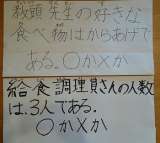 教頭先生の好きな
食べ物はからあげで
ある。○か×か
給食調理員さんの人数
は、3人である。
○か×か